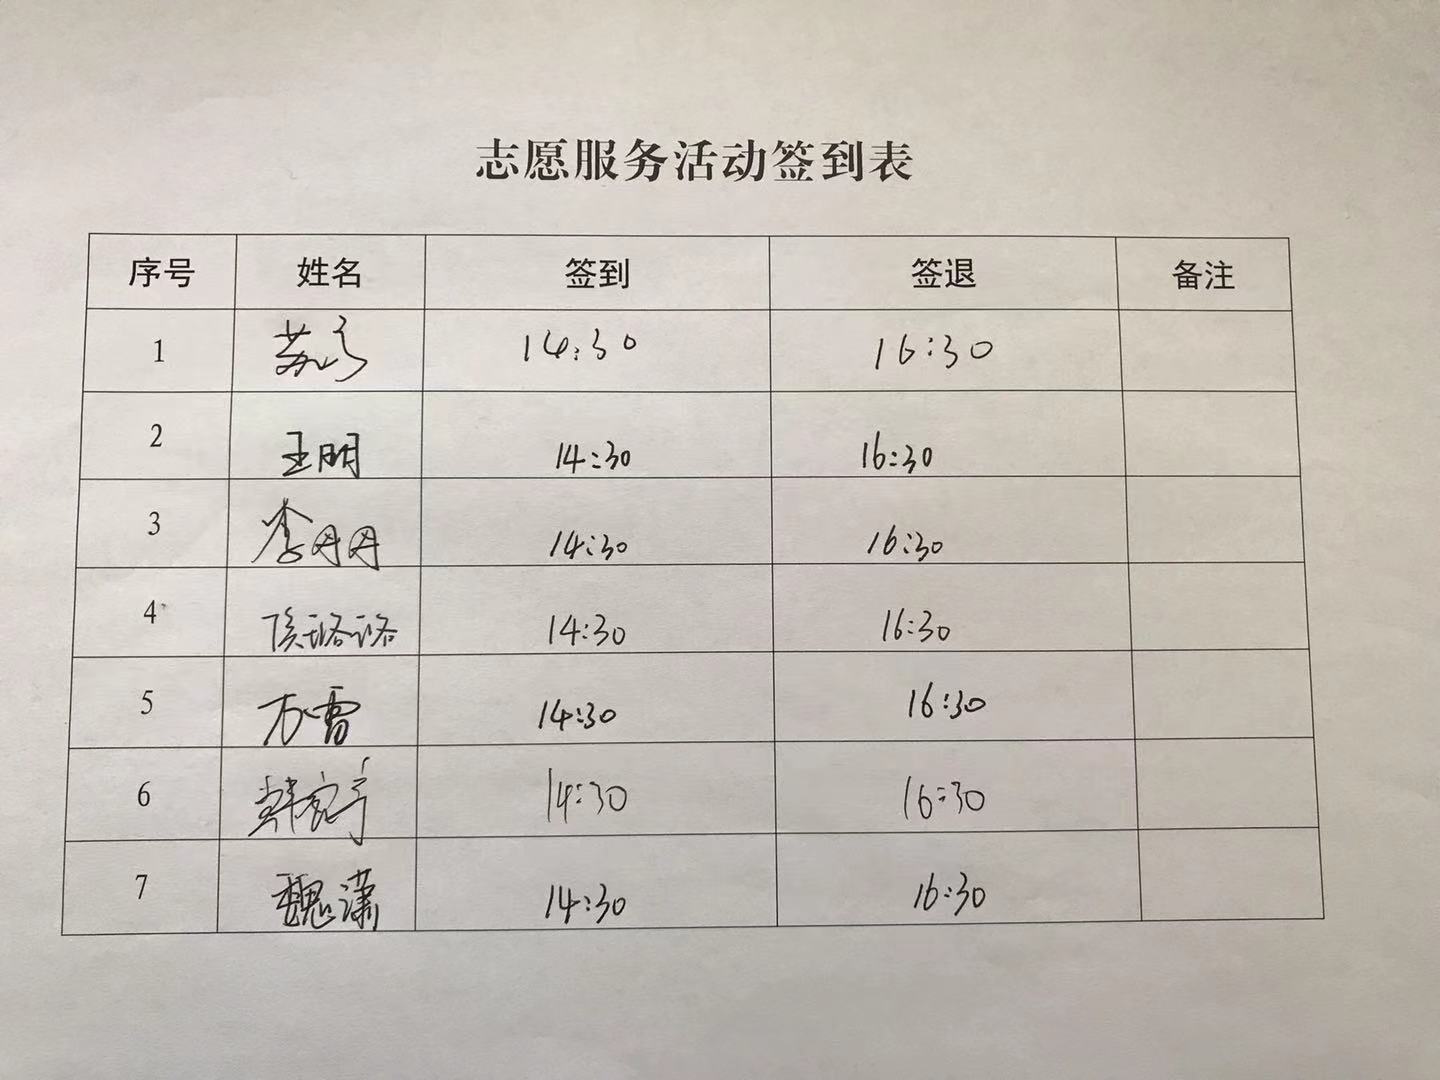 志愿服务活动签到表
序号 姓名 签到 签退 备注
1 苏 14:30 16:30
2 王明 14:30 16:30
3 李丹丹 14:30 16:30
4 侯璐璐 14:30 16:30
5 方雷 14:30 16:30
6 韩 14:30 16:30
7 魏潇 14:30 16:30